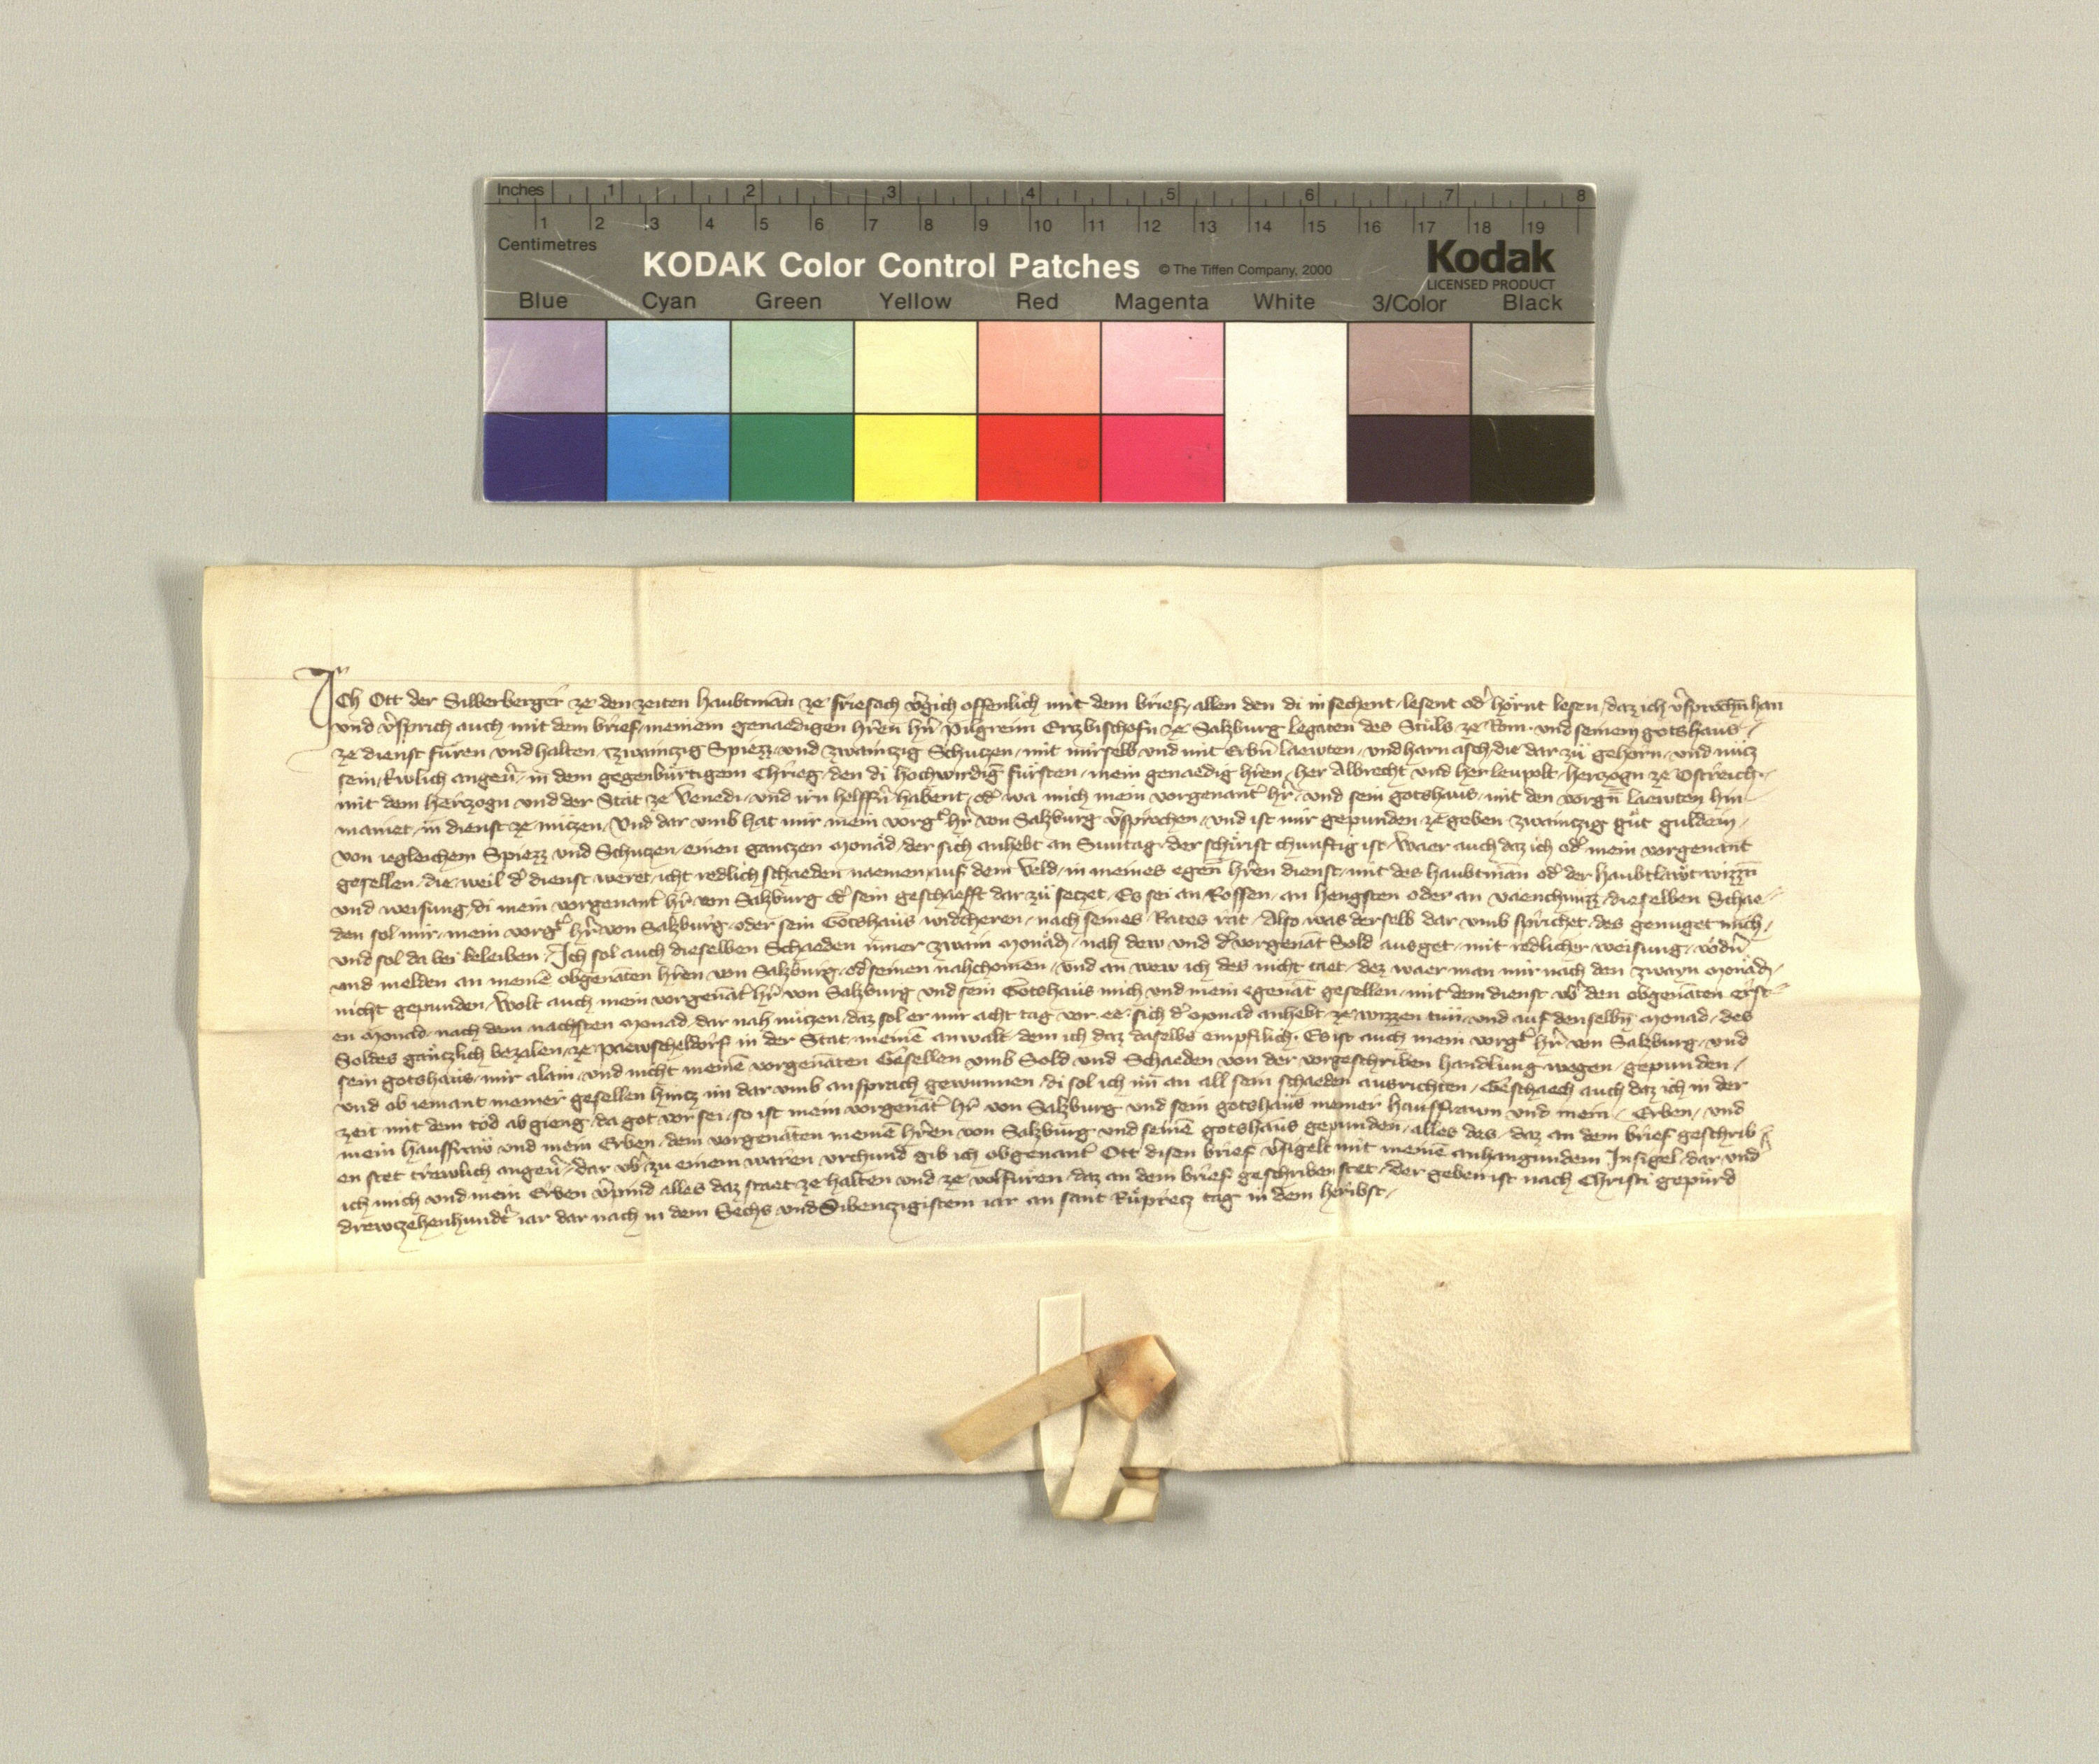 Inches 1 2 3 4 5 6 7 8
1 2 3 4 5 6 7 8 9 10 11 12 13 14 15 16 17 18 19
Centimetres
KODAK Color Control Patches © The Tiffen Company, 2000 Kodak
LICENSED PRODUCT
Blue Cyan Green Yellow Red Magenta White 3/Color Black
Ich Ott der Silberberger ze den zeiten haubtmā ze friesach v̂gich offenlich mit dem brief, allen den di in sechent, lesent od̂ hörnt lesen, daz ich v̂sprochn̄ han
und v̂sprich auch mit dem brief, meinem genaedigen hr̂en hr̂n Pilgreim Erzbischofn ze Salzburg Legaten des Stuls ze Rom, und seinem gotshaus,
ze dienst füren und halten, zwaintzig Spiezz und zwaintzig Schutzen, mit mir selb und mit Erbn̄ laewten, und harnasch, die dar zů gehörn, und nutz
sein, trwlich angeu̯, in dem gegenbürtigem Chrieg, den di hochwirdig fürsten, mein genaedig hr̂en, her Albrecht und her Leupolt, herczogn ze Ostreich,
mit dem herczogn und der Stat ze Venedi, und irn helffn̂ habent, od̂ wa mich mein vorgenant̂ hr̂, und sein gotshaus, mit den vorgn̄ laewten hin
maniet, in dienst ze nützen, Und dar umb hat mir mein vorgt̂ hr̂ von Salzburg v̂sprochen, und ist mir gepunden ze geben zwaintzig gůt guldein,
von iegleichem Spiezz und Schutzen, einen gantzen Monad, der sich anhebt an Suntag, der schirist chunftig ist, Waer auch daz ich od̂ mein vorgenant
gesellen, die weil d̂ dienst weret, icht redlich schaeden naemen, auf dem Veld, in meines egen̄ hr̂en dienst, mit des haubtman̄ od̂ der haubtlaẘt wizzn̄
und weisung, di mein vorgenant̂ hr̂ von Salzburg od̂ sein geschaefft dar zů seczet, Es sei an Rossen, an hengsten oder an vaenchnuzz, dieselben Schae
den sol mir, mein vorgt̂ hr̂ von Salzburg, oder sein Gotshaus widcheren, nach seines Rates rat, Also was derselb dar umb sprichet, des genuget mich,
und sol da bei beleiben, Ich sol auch dieselben Schaeden inner zwain Monādn̄, nah dew und d̂ vorgenāt Sold ausget, mit redlicher weisung, vodn̂
und melden an meinē obgenāten hr̂en von Salzburg, od̂ seinen nahchomen, und an wew ich des nicht taet, dez waer man mir nach den zwayn Monādn̄
nicht gepunden, Wolt auch mein vorgenāt̂ hr̂ von Salzburg und sein Gotshaus mich und mein egenāt gesellen, mit dem dienst vb̂ den obgenāten erst
en Monad, nach dem nachsten Monad, dar nah nützen, daz sol er mir acht tag vor, ee sich d̂ Monad anhebt, ze wizzen tun, und auf denselbn̄ Monad, des
Soldes gäntzlich bezalen, ze Paewscheldorf in der Stat, meinē anwalt, dem ich daz daselbs empfilich, Es ist auch mein vorgt̂ hr̂ von Salzburg, und
sein gotshaus, mir alain, und nicht meinē vorgenāten Gesellen umb Sold und Schaeden von der vorgeschriben handlung wegen, gepunden,
und ob iemant meiner gesellen hintz im dar umb ansprach gewunnen, di sol ich im an all sein schaeden ausrichten, Geschaech auch daz ich in der
zeit mit dem tod ab gieng, da got vor sei, so ist mein vorgenāt̂ hr̂ von Salzburg und sein gotshaus meiner hausfrawn und mein, Erben, und
mein hausfraw und mein Erben, dem vorgenāten meinē hr̂en von Salzburg und seinē gotshaus gepunden, alles des, daz an dem brief geschrib
en stet trewlich angeu̯, dar vb̂ zu einem waren urchund gib ich obgenant̂ Ott disen brief v̂sigelt mit meinē anhangundem Insigel, dar und̂
ich mich und mein Erben v̂pind alles daz staet ze halten und ze volfüren, daz an dem brief geschriben stet, der geben ist nach Christi gepürd
drewczehenhundt̂ iar dar nach in dem Sechs und Sibenczigistem iar an sant Růprecz tag in dem heribst,